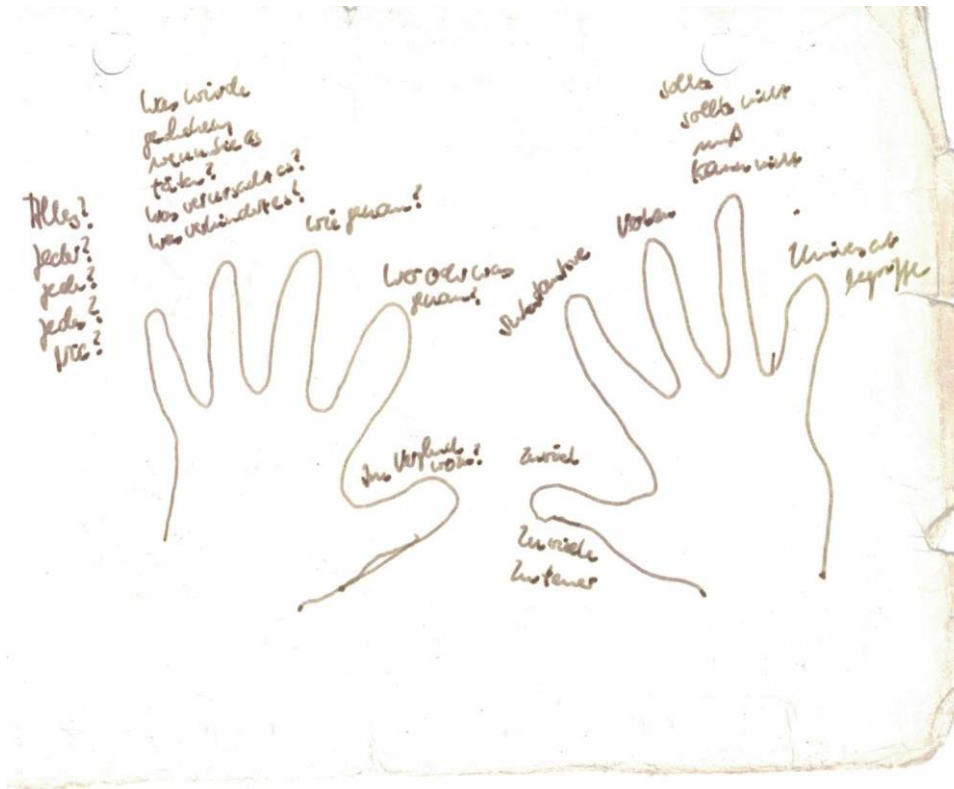 Alles?
Jeder?
jede?
jedes?
Nie?
Was würde
geschehen
wenn Sie es
täten?
Was verursacht es?
Was verhindert es?
wie genau?
Wer oder was
genau?
Im Vergleich
wozu?
Substantive
Verben
sollte
sollte nicht
muß
kann nicht
Universal
begriffe
Zuviel
Zu viele
Zu teuer